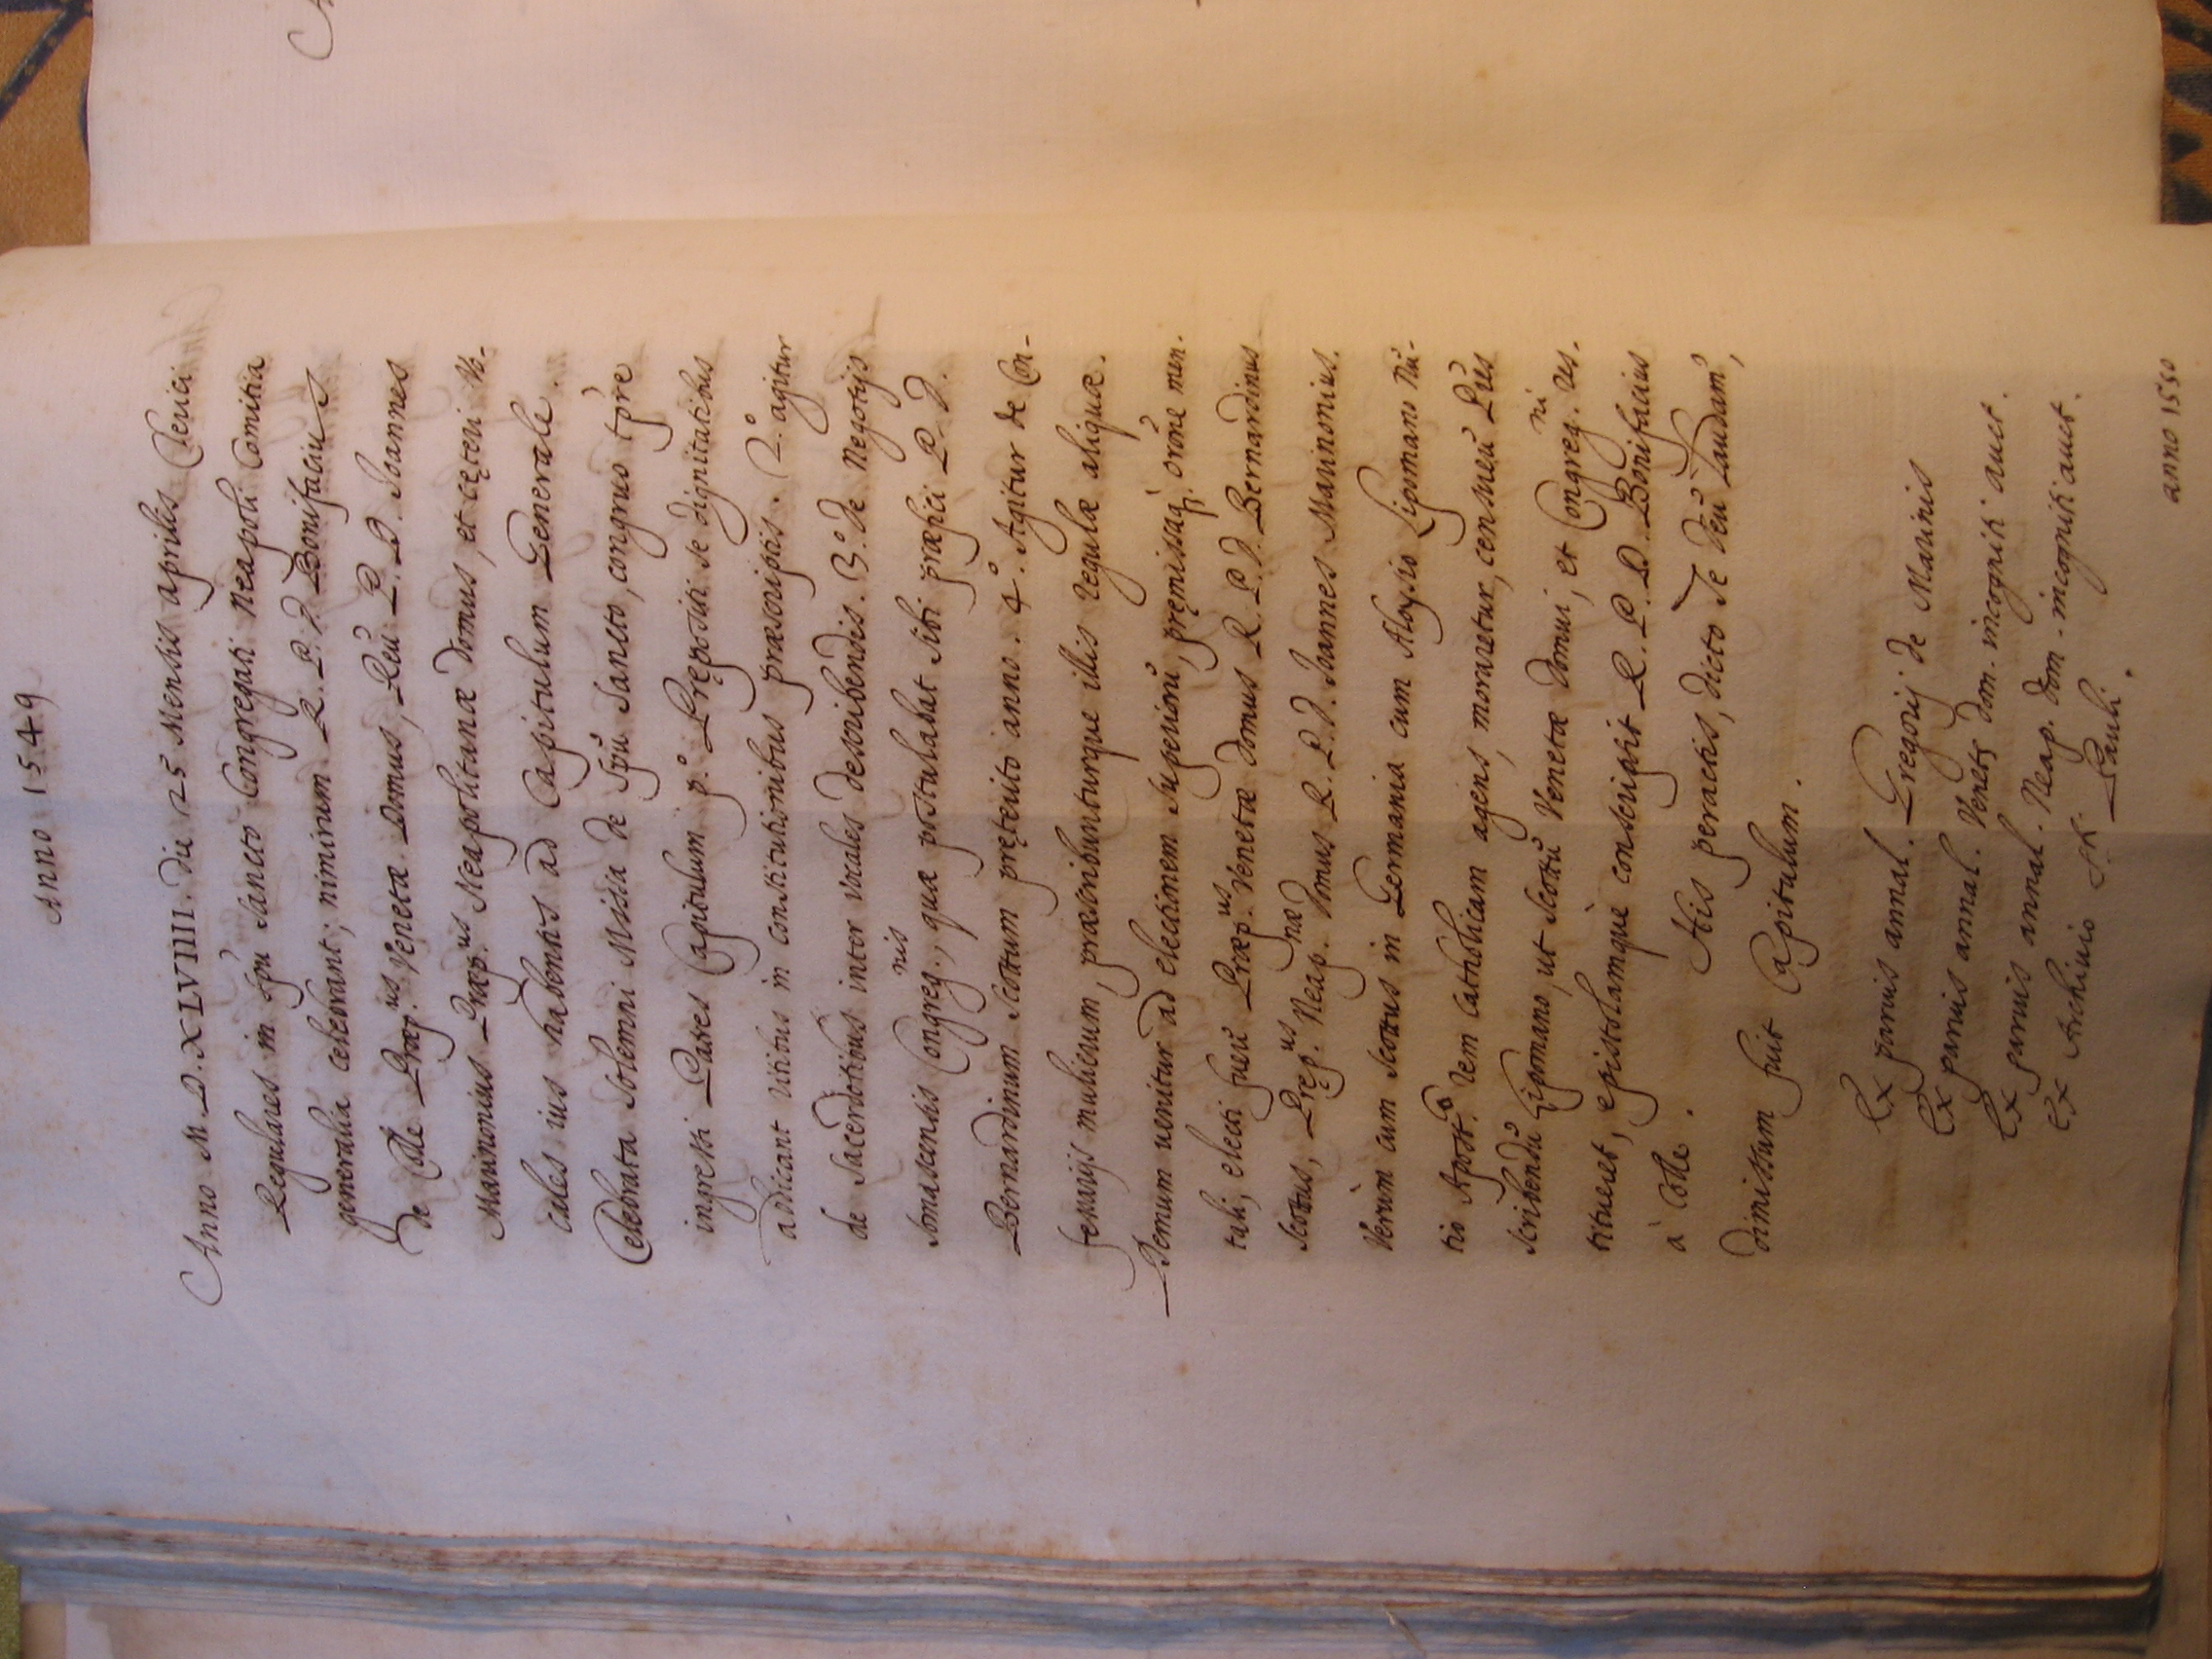 Anno 1549
Anno M.D.XLVIIII. die 25 Mensis aprilis Clerici
Regulares in Spũ Sancto Congregati Neapoli Comitia
generalia celebrant; nimirum R. P. D. Bonifacius
de Colle Præp.us Venetæ Domus, Reũ P. D. Joannes
Marinonius Præp.us Neapolitanæ domus, et cęteri Vo-
cales ius habentes ad Capitulum Generale.
Celebrata Solemni Missa de Spũ Sancto, congruo tp̃re
ingressi Patres Capitulum p.º Prępositi se dignitatibus
abdicant ritibus in Constitutionibus præscriptis. 2.º agitur
de Sacerdotibus inter Vocales describendis. 3.º de Negotijs
Somascensis Congreg.nis, quæ postulabat sibi præfici P. D.
Bernardinum Scottum pręterito anno. 4.º Agitur de Con-
fessarijs mulierum, præscribunturque illis regulæ aliquæ.
Demum uenitur ad electionem Superiorũ, pręmissaq; orõne men.
tali, electi fuerũ Præp.us Venetæ Domus R. P. D. Bernardinus
Scottus, Pręp.us Neap.næ Domus R. P. D. Joannes Marinonius.
Verùm cum Scottus in Germania cum Aloysio Lipomano Nũ-
tio Apost.º rem Catholicam agens, moraretur, censuerũ PP̃es
scribendũ Lipomano, ut Scottũ Venetæ Domui, et Congreg.ni res.
titueret, epistolamquè conscripsit R. P. D. Bonifacius
à Colle.
His peractis, dicto Te Deũ Laudam,
dimissum fuit Capitulum.
Ex paruis annal. Gregorij de Marinis
Ex paruis annal. Venetę dom. incogniti auct.
Ex paruis annal. Neap. dom. incogniti auct.
Ex Archiuio Sti. Pauli.
anno 1550